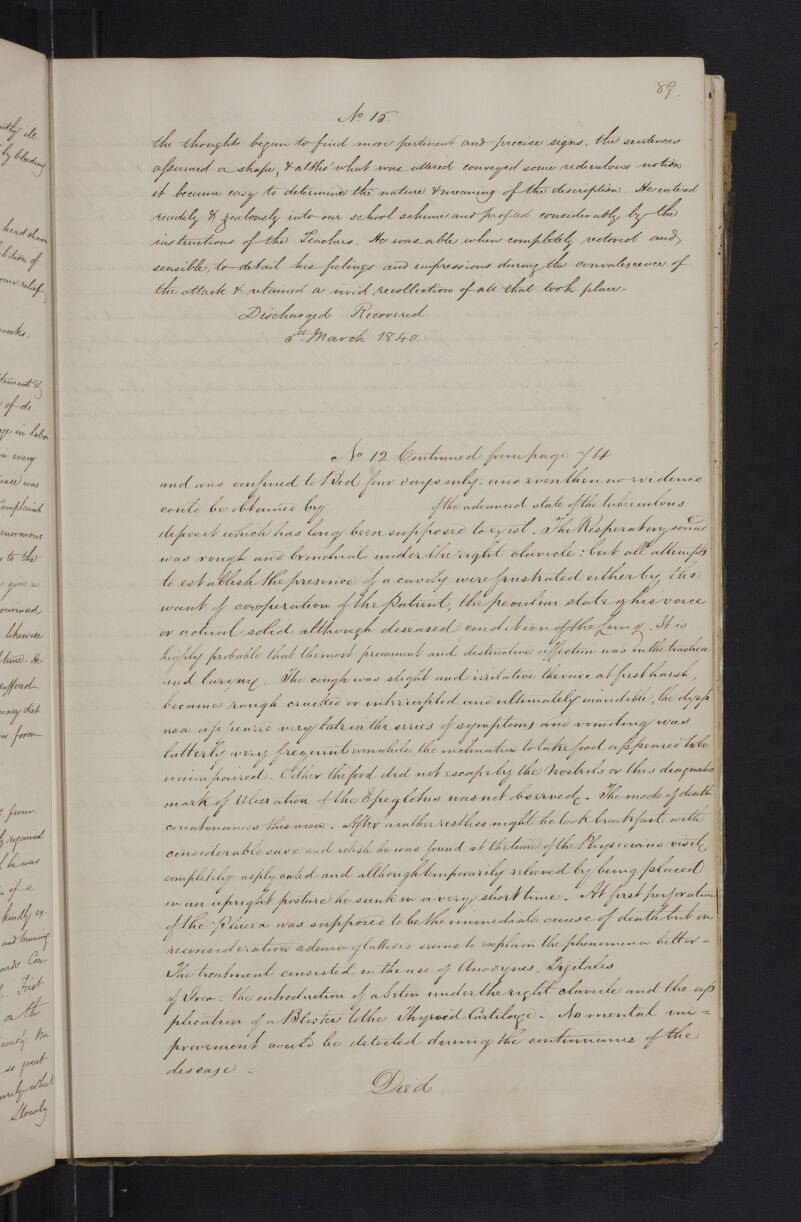 89.
No 15.
the thoughts began to find more pertinent and precise signs, the sentences
assumed a shape, & altho' what was uttered conveyed some ridiculous notion
it became easy to determine the nature & meaning of the description. He entered
readily & zealously into our school scheme and profited considerably by the
instructions of the Teachers. He was able when completely restored and
sensible, to detail his feelings and impressions during the convalescence of
the attack & retained a vivid recollection of all that took place.
Discharged Recovered
5th March 1840.
No 12 Continued from page 74
and was confined to Bed four days only; and even then no evidence
could be obtained by of the advanced state of the tuberculous
deposit which has long been supposed to exist. The Respiratory sound
was rough and bronchial under the right clavicle: but all attempts
to establish the presence of a cavity were frustrated either by the
want of cooperation of the Patient, the peculiar state of his voice
or actual solid although diseased condition of the Lung. It is
highly probable that the most prominent and destructive affection was in the trachea
and Larynx. The cough was slight and irritative the voice at first harsh,
became rough cracked or interrupted and ultimately inaudible, the dysp
nœa appeared very late in the series of symptoms and vomiting was
latterly very frequent even while the inclination to take food appeared to be
unimpaired. Either the food did not escape by the Nostrils or this diagnostic
mark of Ulceration of the Epeglotus was not observed. The mode of death
countenances this view. After a rather restless night he took breakfast with
considerable ease and relish he was found at the time of the Physicians visit
completely asphyxiated and although temporarily relieved by being placed
in an upright posture he sunk in a very short time. At first perforation
of the Pleura was supposed to be the immediate cause of death but on
reconsideration œdema glottidis seems to explain the phenomena better -
The treatment consisted in the use of Anodynes, Digitalis
of Iron: the introduction of a Seton under the right clavicle and the ap
plication of a Blister to the Thyroid Cartilage. No mental im=
provement could be detected during the continuance of the
disease -
Died.